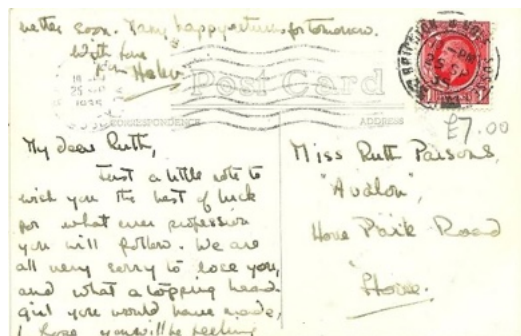 better soon. Many happy returns for tomorrow.
With love
from Helen
Post Card
CORRESPONDENCE
ADDRESS
25 SP
1935
£7.00
My dear Ruth,
Just a little note to
wish you the best of luck
for what ever profession
you will follow. We are
all very sorry to lose you,
and what a topping head
girl you would have made,
I hope you will be feeling
Miss Ruth Parsons,
"Avalon",
Hove Park Road
Hove.